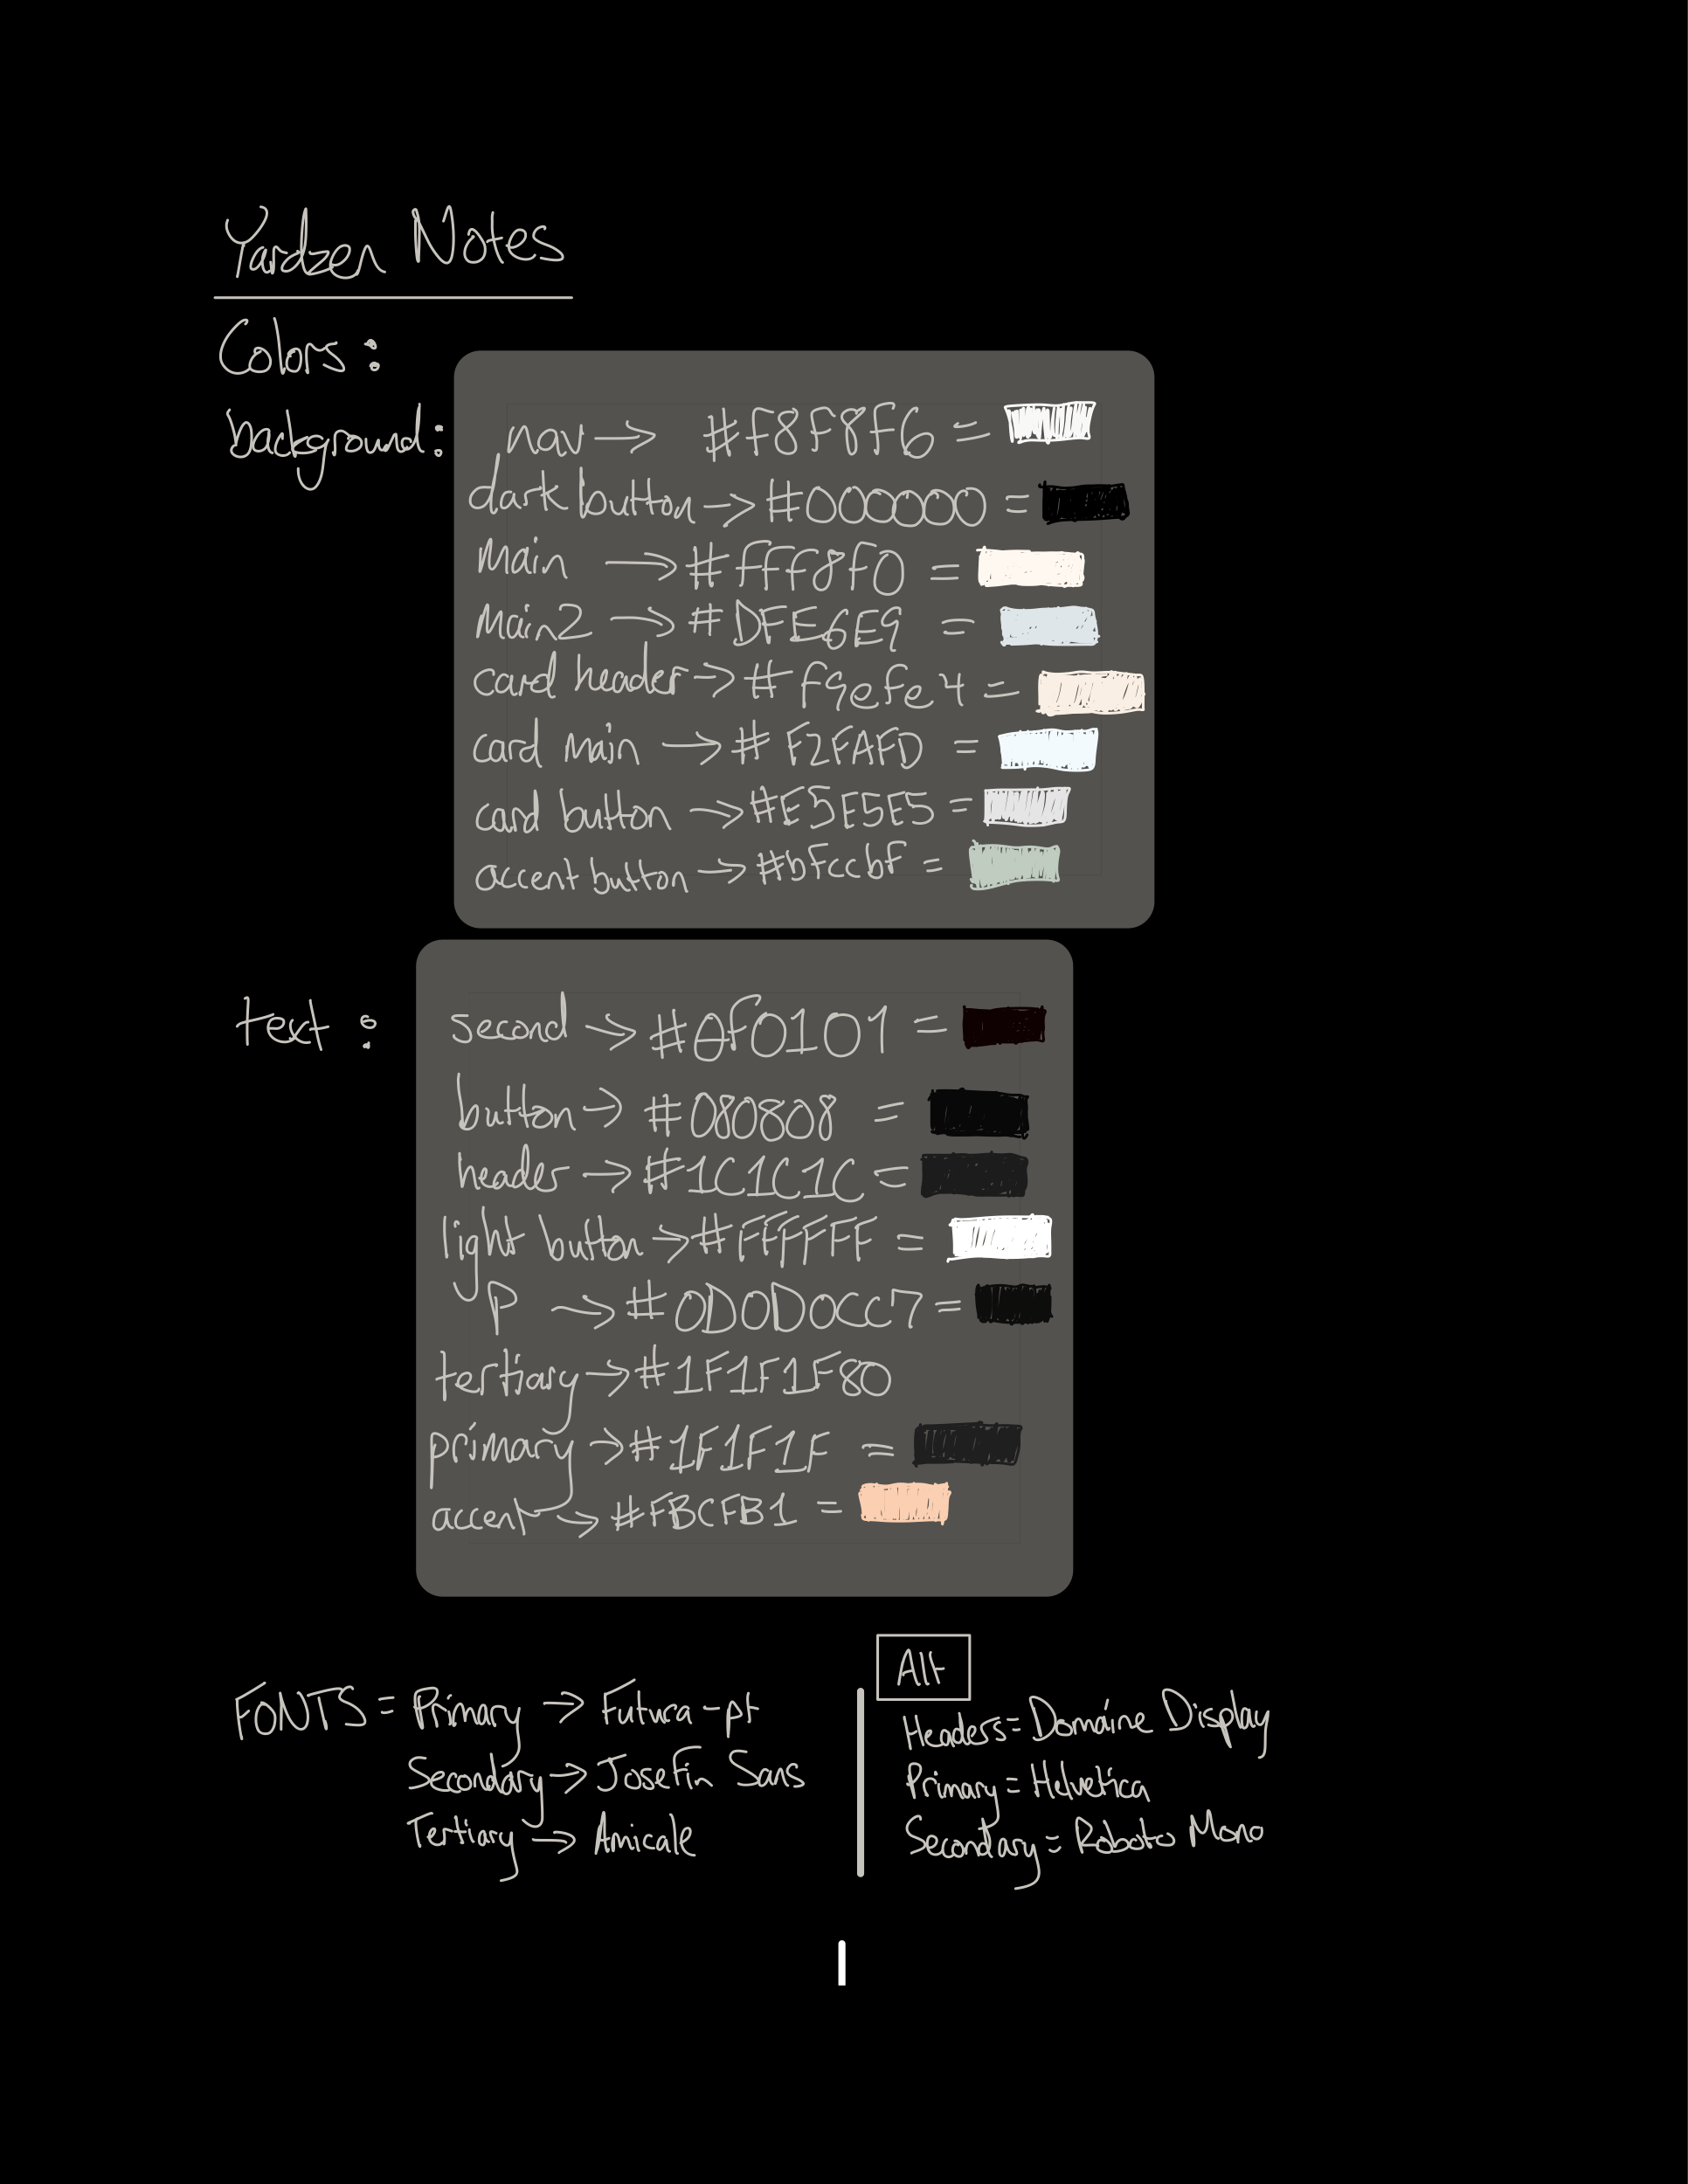 Yardzen Notes
Colors:
background:
nav → #f8F8F6 =
dark button → #000000 =
Main → #fff8f0 =
Main2 → #DFE6E9 =
card header → #f9efe4 =
card main → #F2FAFD =
card button → #E5E5E5 =
accent button → #bfccbf =
text:
second → #0f0101 =
button → #080808 =
header → #1C1C1C =
light button → #FFFFFF =
P → #0D0D0CC7 =
tertiary → #1F1F1F80
primary → #1F1F1F =
accent → #FBCFB1 =
FONTS = Primary → Futura-pt
Secondary → Josefin Sans
Tertiary → Amicale
Alt
Headers = Domaine Display
Primary = Helvetica
Secondary = Roboto Mono